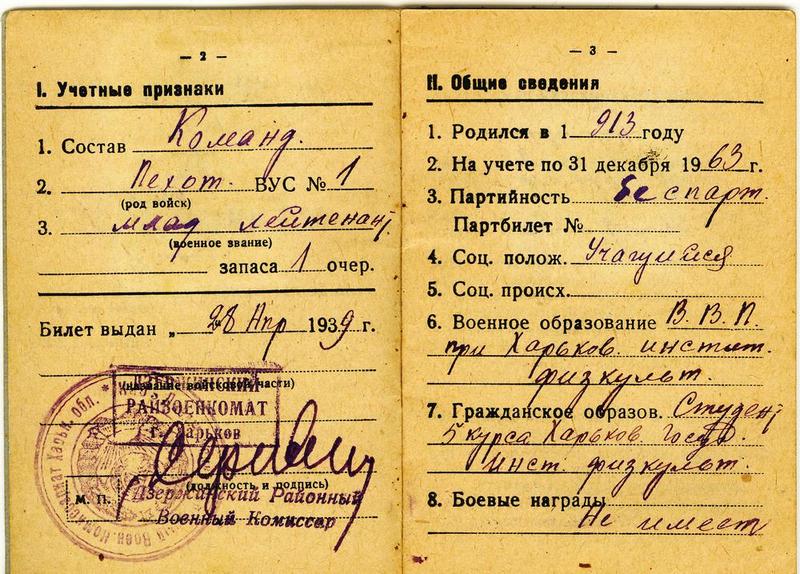 — 2 —
I. Учетные признаки
1. Состав Команд.
2. Пехот. ВУС № 1
(род войск)
3. млад лейтенант
(военное звание)
запаса 1 очер.
Билет выдан „ 28 Апр 1939 г.
(название войсковой части)
РАЙВОЕНКОМАТ
г. Харьков
(должность и подпись)
М. П. Дзержинский Районный
Военный Комиссар
— 3 —
II. Общие сведения
1. Родился в 1 913 году
2. На учете по 31 декабря 19 63 г.
3. Партийность беспарт.
Партбилет №
4. Соц. полож. Учащийся
5. Соц. происх.
6. Военное образование В. В. П.
при Харьков. инстит.
физкульт.
7. Гражданское образов. Студент
5 курса Харьков. госуд.
инст. физкульт.
8. Боевые награды
Не имеет